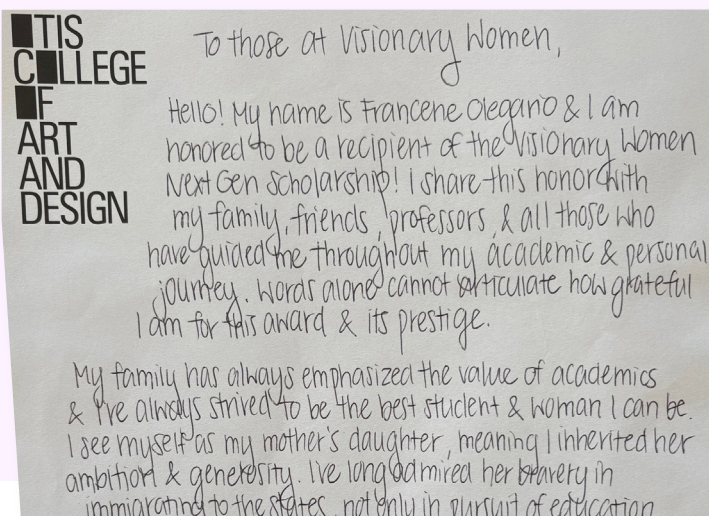 OTIS
COLLEGE
OF
ART
AND
DESIGN
To those at Visionary Women,
Hello! My name is Francene Olegario & I am
honored to be a recipient of the Visionary Women
Next Gen Scholarship! I share this honor with
my family, friends, professors, & all those who
have guided me throughout my academic & personal
journey. Words alone cannot articulate how grateful
I am for this award & its prestige.
My family has always emphasized the value of academics
& I've always strived to be the best student & woman I can be.
I see myself as my mother's daughter, meaning I inherited her
ambition & generosity. I've long admired her bravery in
immigrating to the states, not only in pursuit of education